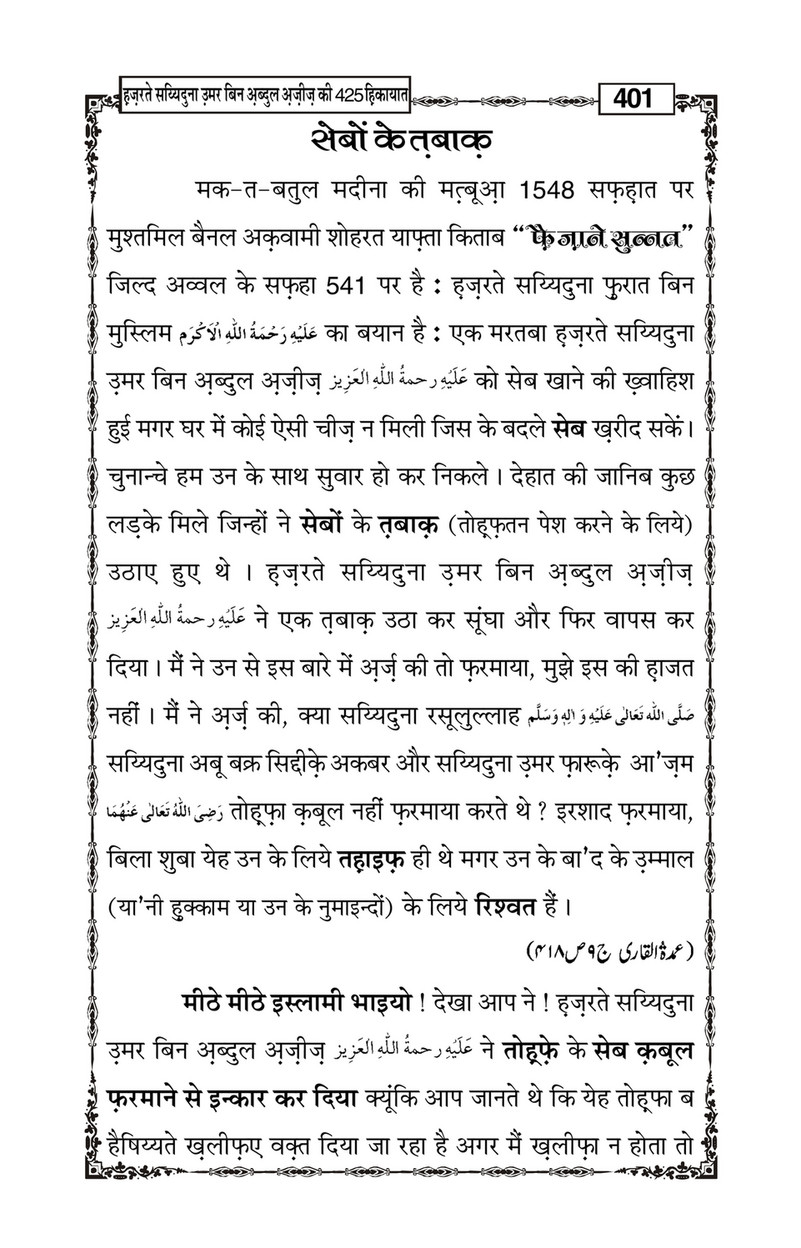 हज़रते सय्यिदुना उ़मर बिन अ़ब्दुल अ़ज़ीज़ की 425 हिकायात
401
सेबों के त़बाक़
मक-त-बतुल मदीना की मत़्बूआ़ 1548 सफ़ह़ात पर
मुश्तमिल बैनल अक़्वामी शोहरत याफ़्ता किताब “फ़ैज़ाने सुन्नत”
जिल्द अव्वल के सफ़ह़ा 541 पर है : ह़ज़रते सय्यिदुना फ़ुरात बिन
मुस्लिम عَلَيْهِ رَحْمَةُ اللهِ الْاَكْرَم का बयान है : एक मरतबा ह़ज़रते सय्यिदुना
उ़मर बिन अ़ब्दुल अ़ज़ीज़ عَلَيْهِ رحمةُ اللهِ العَزِيز को सेब खाने की ख़्वाहिश
हुई मगर घर में कोई ऐसी चीज़ न मिली जिस के बदले सेब ख़रीद सकें ।
चुनान्चे हम उन के साथ सुवार हो कर निकले । देहात की जानिब कुछ
लड़के मिले जिन्हों ने सेबों के त़बाक़ (तोह़्फ़तन पेश करने के लिये)
उठाए हुए थे । ह़ज़रते सय्यिदुना उ़मर बिन अ़ब्दुल अ़ज़ीज़
عَلَيْهِ رحمةُ اللهِ العَزِيز ने एक त़बाक़ उठा कर सूंघा और फिर वापस कर
दिया । मैं ने उन से इस बारे में अ़र्ज़ की तो फ़रमाया, मुझे इस की ह़ाजत
नहीं । मैं ने अ़र्ज़ की, क्या सय्यिदुना रसूलुल्लाह صَلَّى الله تَعَالٰى عَلَيْهِ وَاٰلِهٖ وَسَلَّم
सय्यिदुना अबू बक्र सिद्दीक़े अकबर और सय्यिदुना उ़मर फ़ारूक़े आ'ज़म
رَضِىَ اللهُ تَعَالٰى عَنْهُمَا तोह़्फ़ा क़बूल नहीं फ़रमाया करते थे ? इरशाद फ़रमाया,
बिला शुबा येह उन के लिये तह़ाइफ़ ही थे मगर उन के बा'द के उ़म्माल
(या'नी हुक्काम या उन के नुमाइन्दों) के लिये रिश्वत हैं ।
(عمدۃ القاری ج۹ص۴۱۸)
मीठे मीठे इस्लामी भाइयो ! देखा आप ने ! ह़ज़रते सय्यिदुना
उ़मर बिन अ़ब्दुल अ़ज़ीज़ عَلَيْهِ رحمةُ اللهِ العَزِيز ने तोह़्फ़े के सेब क़बूल
फ़रमाने से इन्कार कर दिया क्यूंकि आप जानते थे कि येह तोह़्फ़ा ब
ह़ैषिय्यते ख़लीफ़ए वक़्त दिया जा रहा है अगर मैं ख़लीफ़ा न होता तो